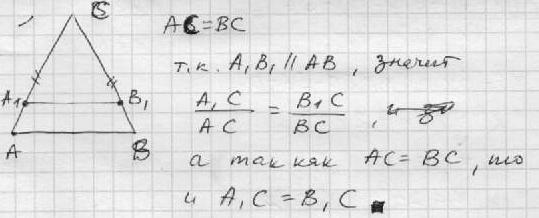 C
A₁
B₁
A
B
AC = BC
т.к. A₁B₁ || AB, значит
A₁C / AC = B₁C / BC, и
а так как AC = BC, то
и A₁C = B₁C